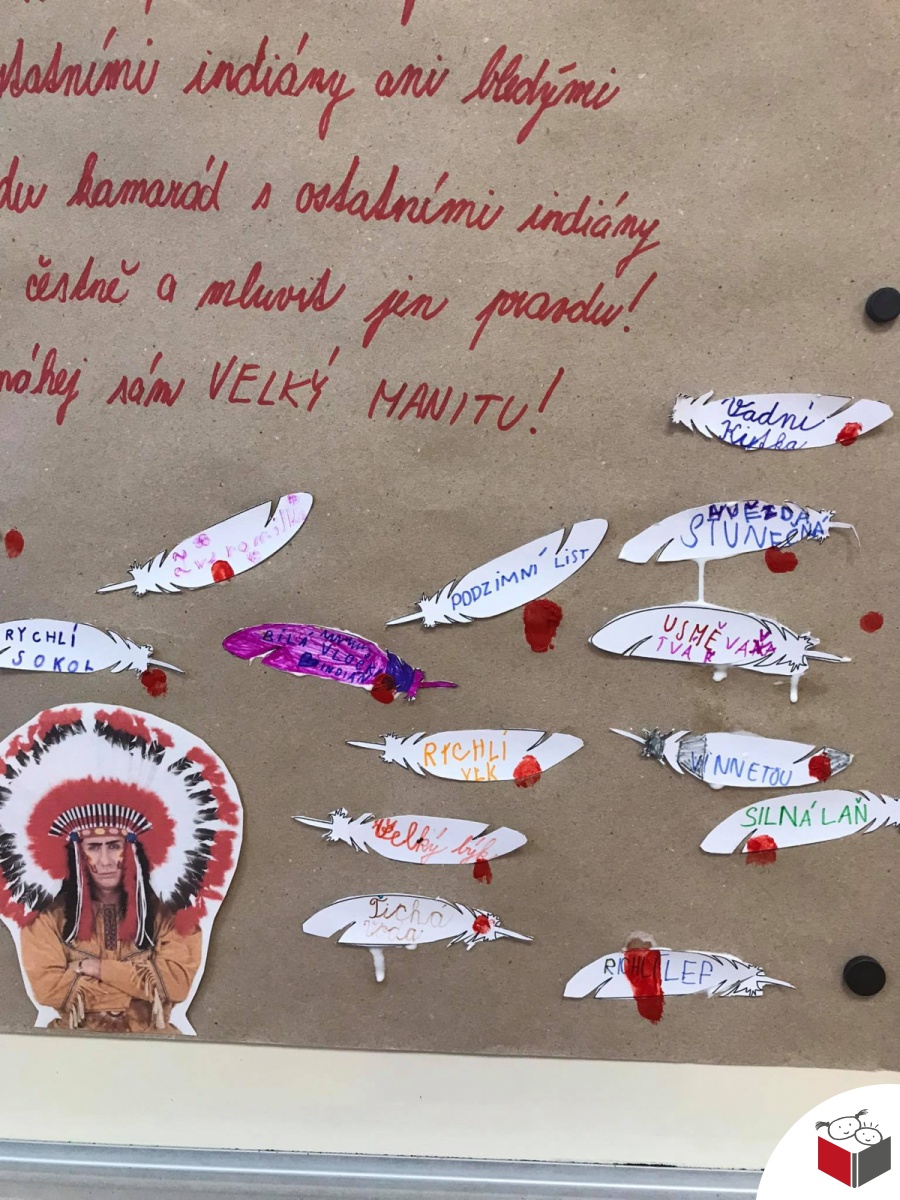 ostatními indiány ani bledými
du kamarád s ostatními indiány
čéstně a mluvit jen pravdu!
máhej sám VELKÝ MANITU!
Vadní
Kitka
HVĚZDA
STUNEČNÁ
PODZIMNÍ LIST
RYCHLÍ
SOKOL
BÍLÁ
INDIÁN
USMĚVAVA
TVÁŘ
RYCHLÍ
VLK
VINNETOU
SILNÁ LAŇ
Velký býk
Tichá
RICHLÍ LEP